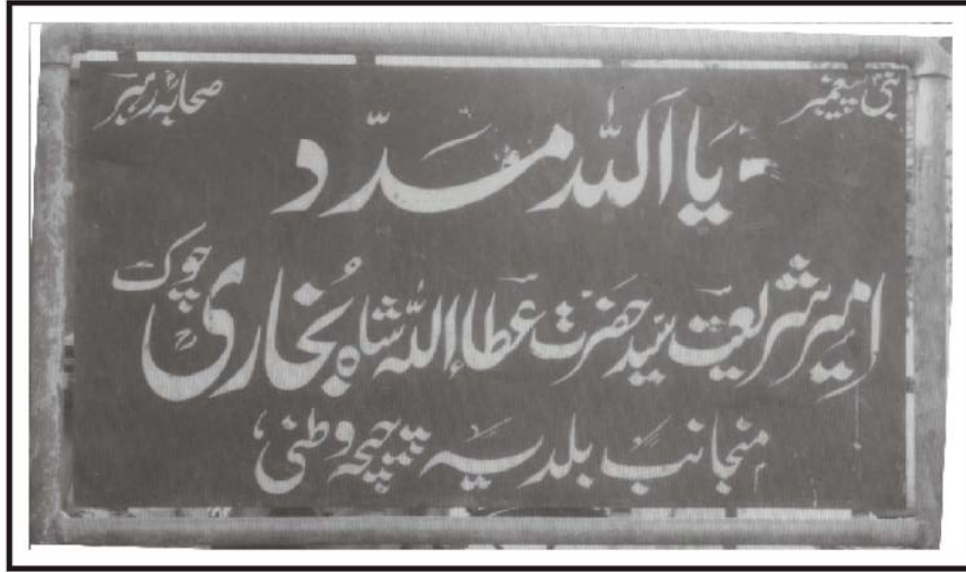 نبیؐ پیغمبر
صحابہؓ رہبر
یا اللہ مدد
امیر شریعت سید حضرت عطاء اللہ شاہ بخاریؒ چوک
منجانب بلدیہ چیچہ وطنی